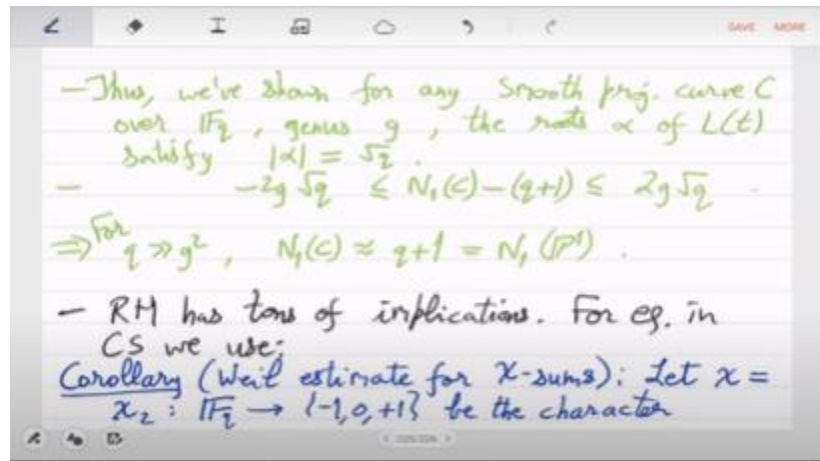 SAVE MORE
- Thus, we've shown for any smooth proj. curve C
over 𝔽_q, genus g, the roots α of L(t)
satisfy |α| = √q.
- -2g√q ≤ N₁(C)-(q+1) ≤ 2g√q.
⇒ For q ≫ g², N₁(C) ≈ q+1 = N₁(ℙ¹).
- RH has tons of implications. For eg. in
CS we use:
Corollary (Weil estimate for χ-sums): Let χ =
χ₂ : 𝔽_q → {-1,0,+1} be the character